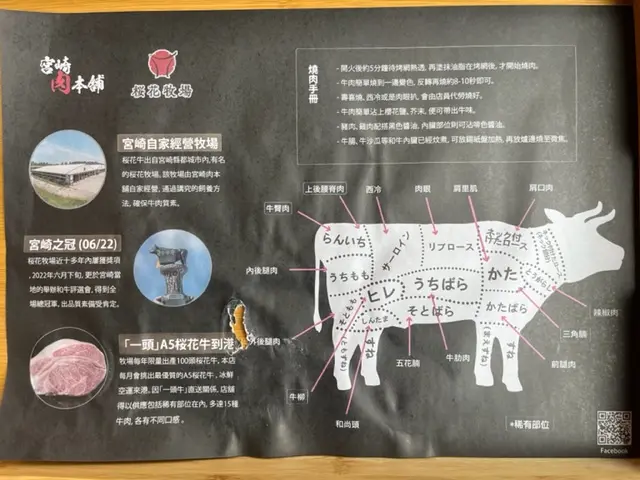 宮崎
肉本舖
桜花牧場
宮崎自家經營牧場
桜花牛出自宮崎縣都城市內,有名
的桜花牧場。該牧場由宮崎肉本
舖自家經營,通過講究的飼養方
法,確保牛肉質素。
宮崎之冠 (06/22)
桜花牧場近十多年內屢獲獎項
,2022年六月下旬,更於宮崎當
地的舉辦和牛評選會,得到全
場總冠軍,出品質素備受肯定。
「一頭」A5桜花牛到港
牧場每年限量出產100頭桜花牛,本店
每月會挑出最優質的A5桜花牛,冰鮮
空運來港。因「一頭牛」直送關係,店舖
得以供應包括稀有部位在內,多達15種
牛肉,各有不同口感。
燒肉手冊
- 開火後約5分鐘待烤網熱透,再塗抹油脂在烤網後,才開始燒肉。
- 牛肉簡單燒到一邊變色,反轉再燒約8-10秒即可。
- 壽喜燒、西冷或是肉眼扒,會由店員代勞燒好。
- 牛肉簡單沾上櫻花鹽、芥末,便可帶出牛味。
- 豬肉、雞肉配搭黑色醬油,內臟部位則可沾啡色醬油。
上後腰脊肉
西冷
肉眼
肩里肌
肩口肉
牛臀肉
らんいち
サーロイン
リブロース
內後腿肉
うちもも
ヒレ
うちばら
かた
とうがらし
しんたま
そとばら
かたばら
辣椒肉
三角腩
前腿肉
後腿肉
すね
すね
五花腩
牛肋肉
牛柳
和尚頭
*稀有部位
Facebook